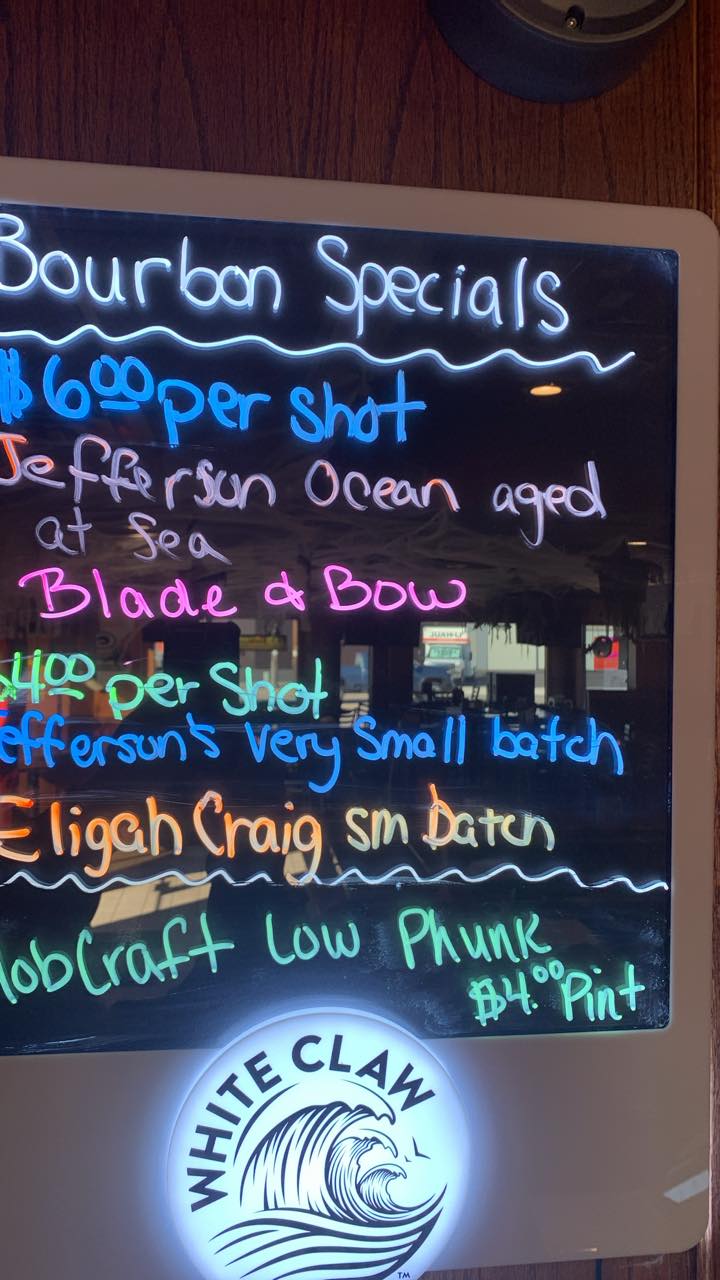 Bourbon Specials
$6.00 per shot
Jefferson Ocean aged
at Sea
Blade & Bow
$4.00 per Shot
efferson's Very Small batch
Eligah Craig sm Batch
obCraft Low Phunk
$4.00 Pint
WHITE CLAW
TM